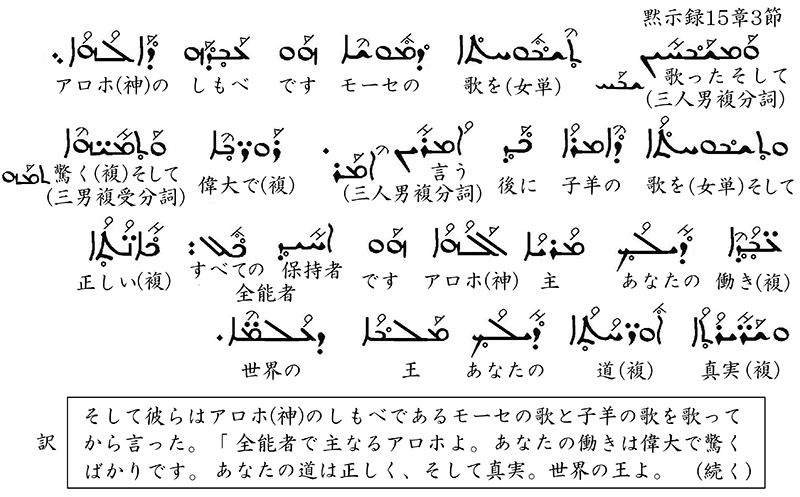 黙示録15章3節
ܘܡܫܒܚܝܢ ܬܫܒܘܚܬܐ ܕܡܘܫܐ ܗܘ ܥܒܕܗ ܕܐܠܗܐ܀
アロホ(神)の しもべ です モーセの 歌を(女単) 歌ったそして
ܫܒܚ (三人男複分詞)
ܘܬܫܒܘܚܬܐ ܕܐܡܪܐ ܟܕ ܐܡܪܝܢ. ܪܘܪܒܐ ܘܬܡܝܗܐ
ܬܡܗ 驚く(複)そして 偉大で(複) ܐܡܪ 言う 後に 子羊の 歌を(女単)そして
(三男複受分詞) (三人男複分詞)
ܥܒܕܐ ܕܝܠܟ ܡܪܝܐ ܐܠܗܐ ܗܘ ܐܚܝܕ ܟܠ: ܟܐܢܬܐ
正しい(複) すべての 保持者 です アロホ(神) 主 あなたの 働き(複)
全能者
ܘܫܪܝܪܬܐ ܐܘܪܚܬܐ ܕܝܠܟ ܡܠܟܐ ܕܥܠܡܐ.
世界の 王 あなたの 道(複) 真実(複)
訳
そして彼らはアロホ(神)のしもべであるモーセの歌と子羊の歌を歌って
から言った。「全能者で主なるアロホよ。あなたの働きは偉大で驚く
ばかりです。あなたの道は正しく、そして真実。世界の王よ。 (続く)